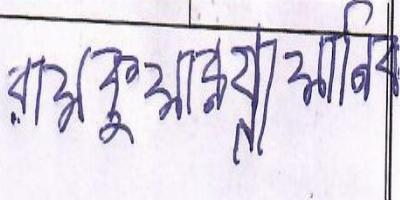 রাম কুমার প্রামানিক